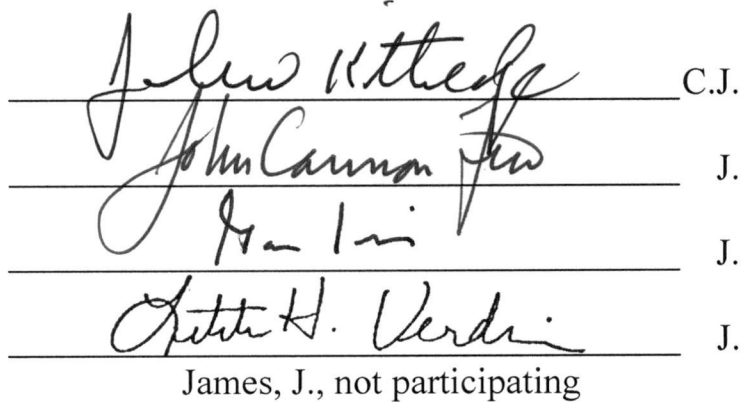 John Kittredge C.J.
John Cannon Few J.
J.
Letitia H. Verdin J.
James, J., not participating